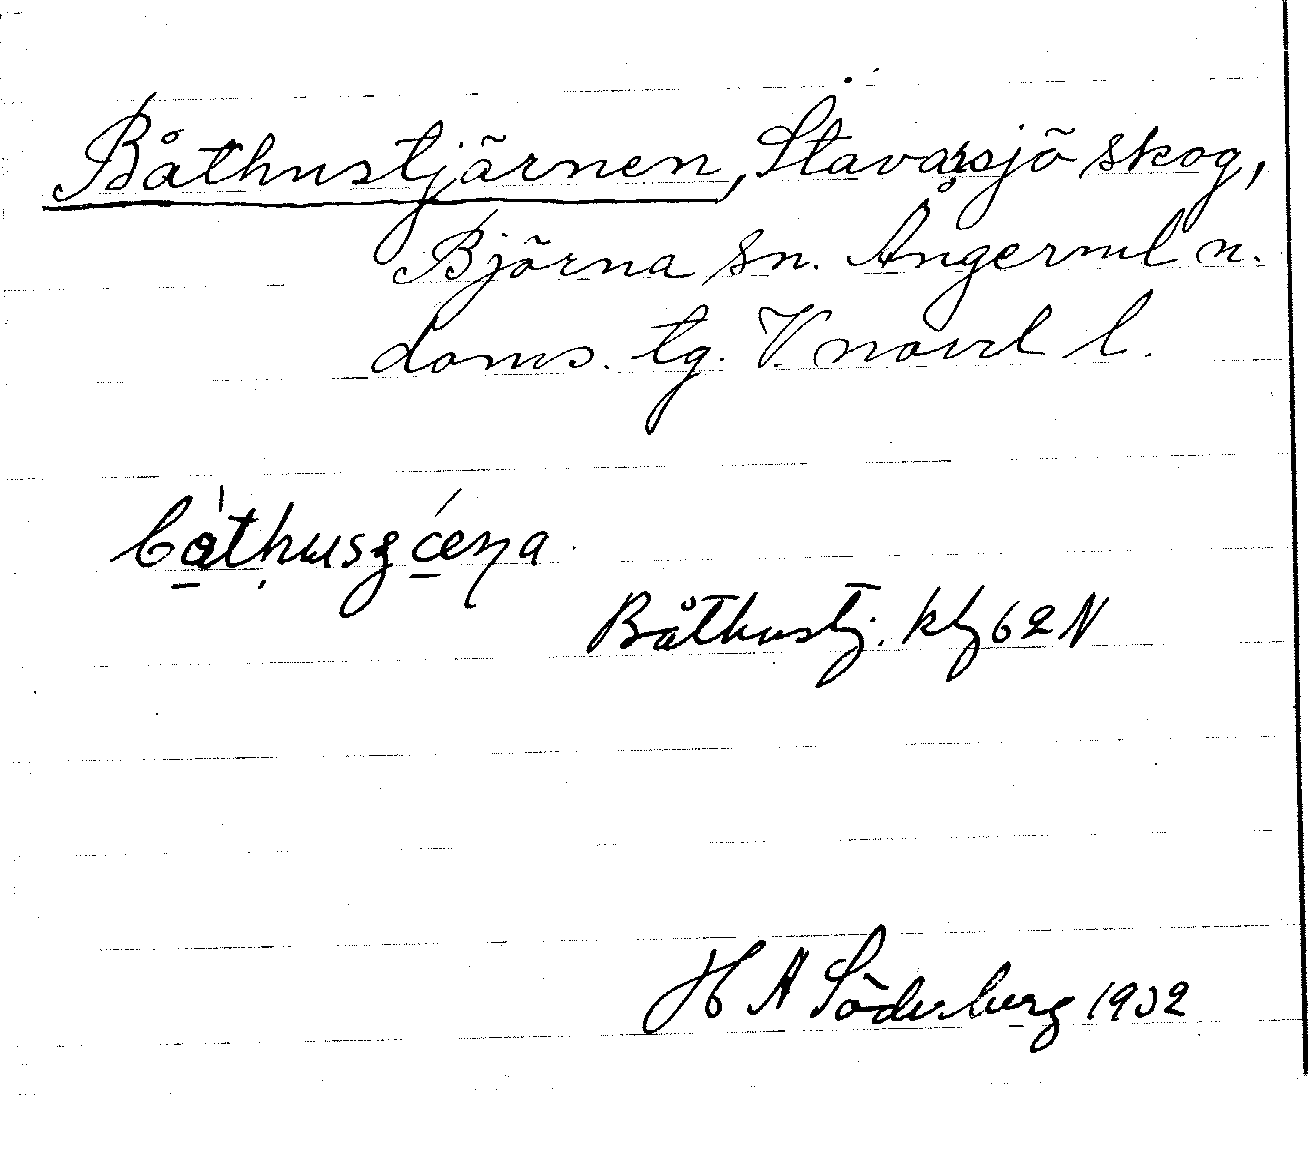 Båthustjärnen, Stavarsjö skog,
Björna sn. Ångerml n.
doms. tg. V. norrl l.
Båthustj. kbl 62 N
H A Söderberg 1932